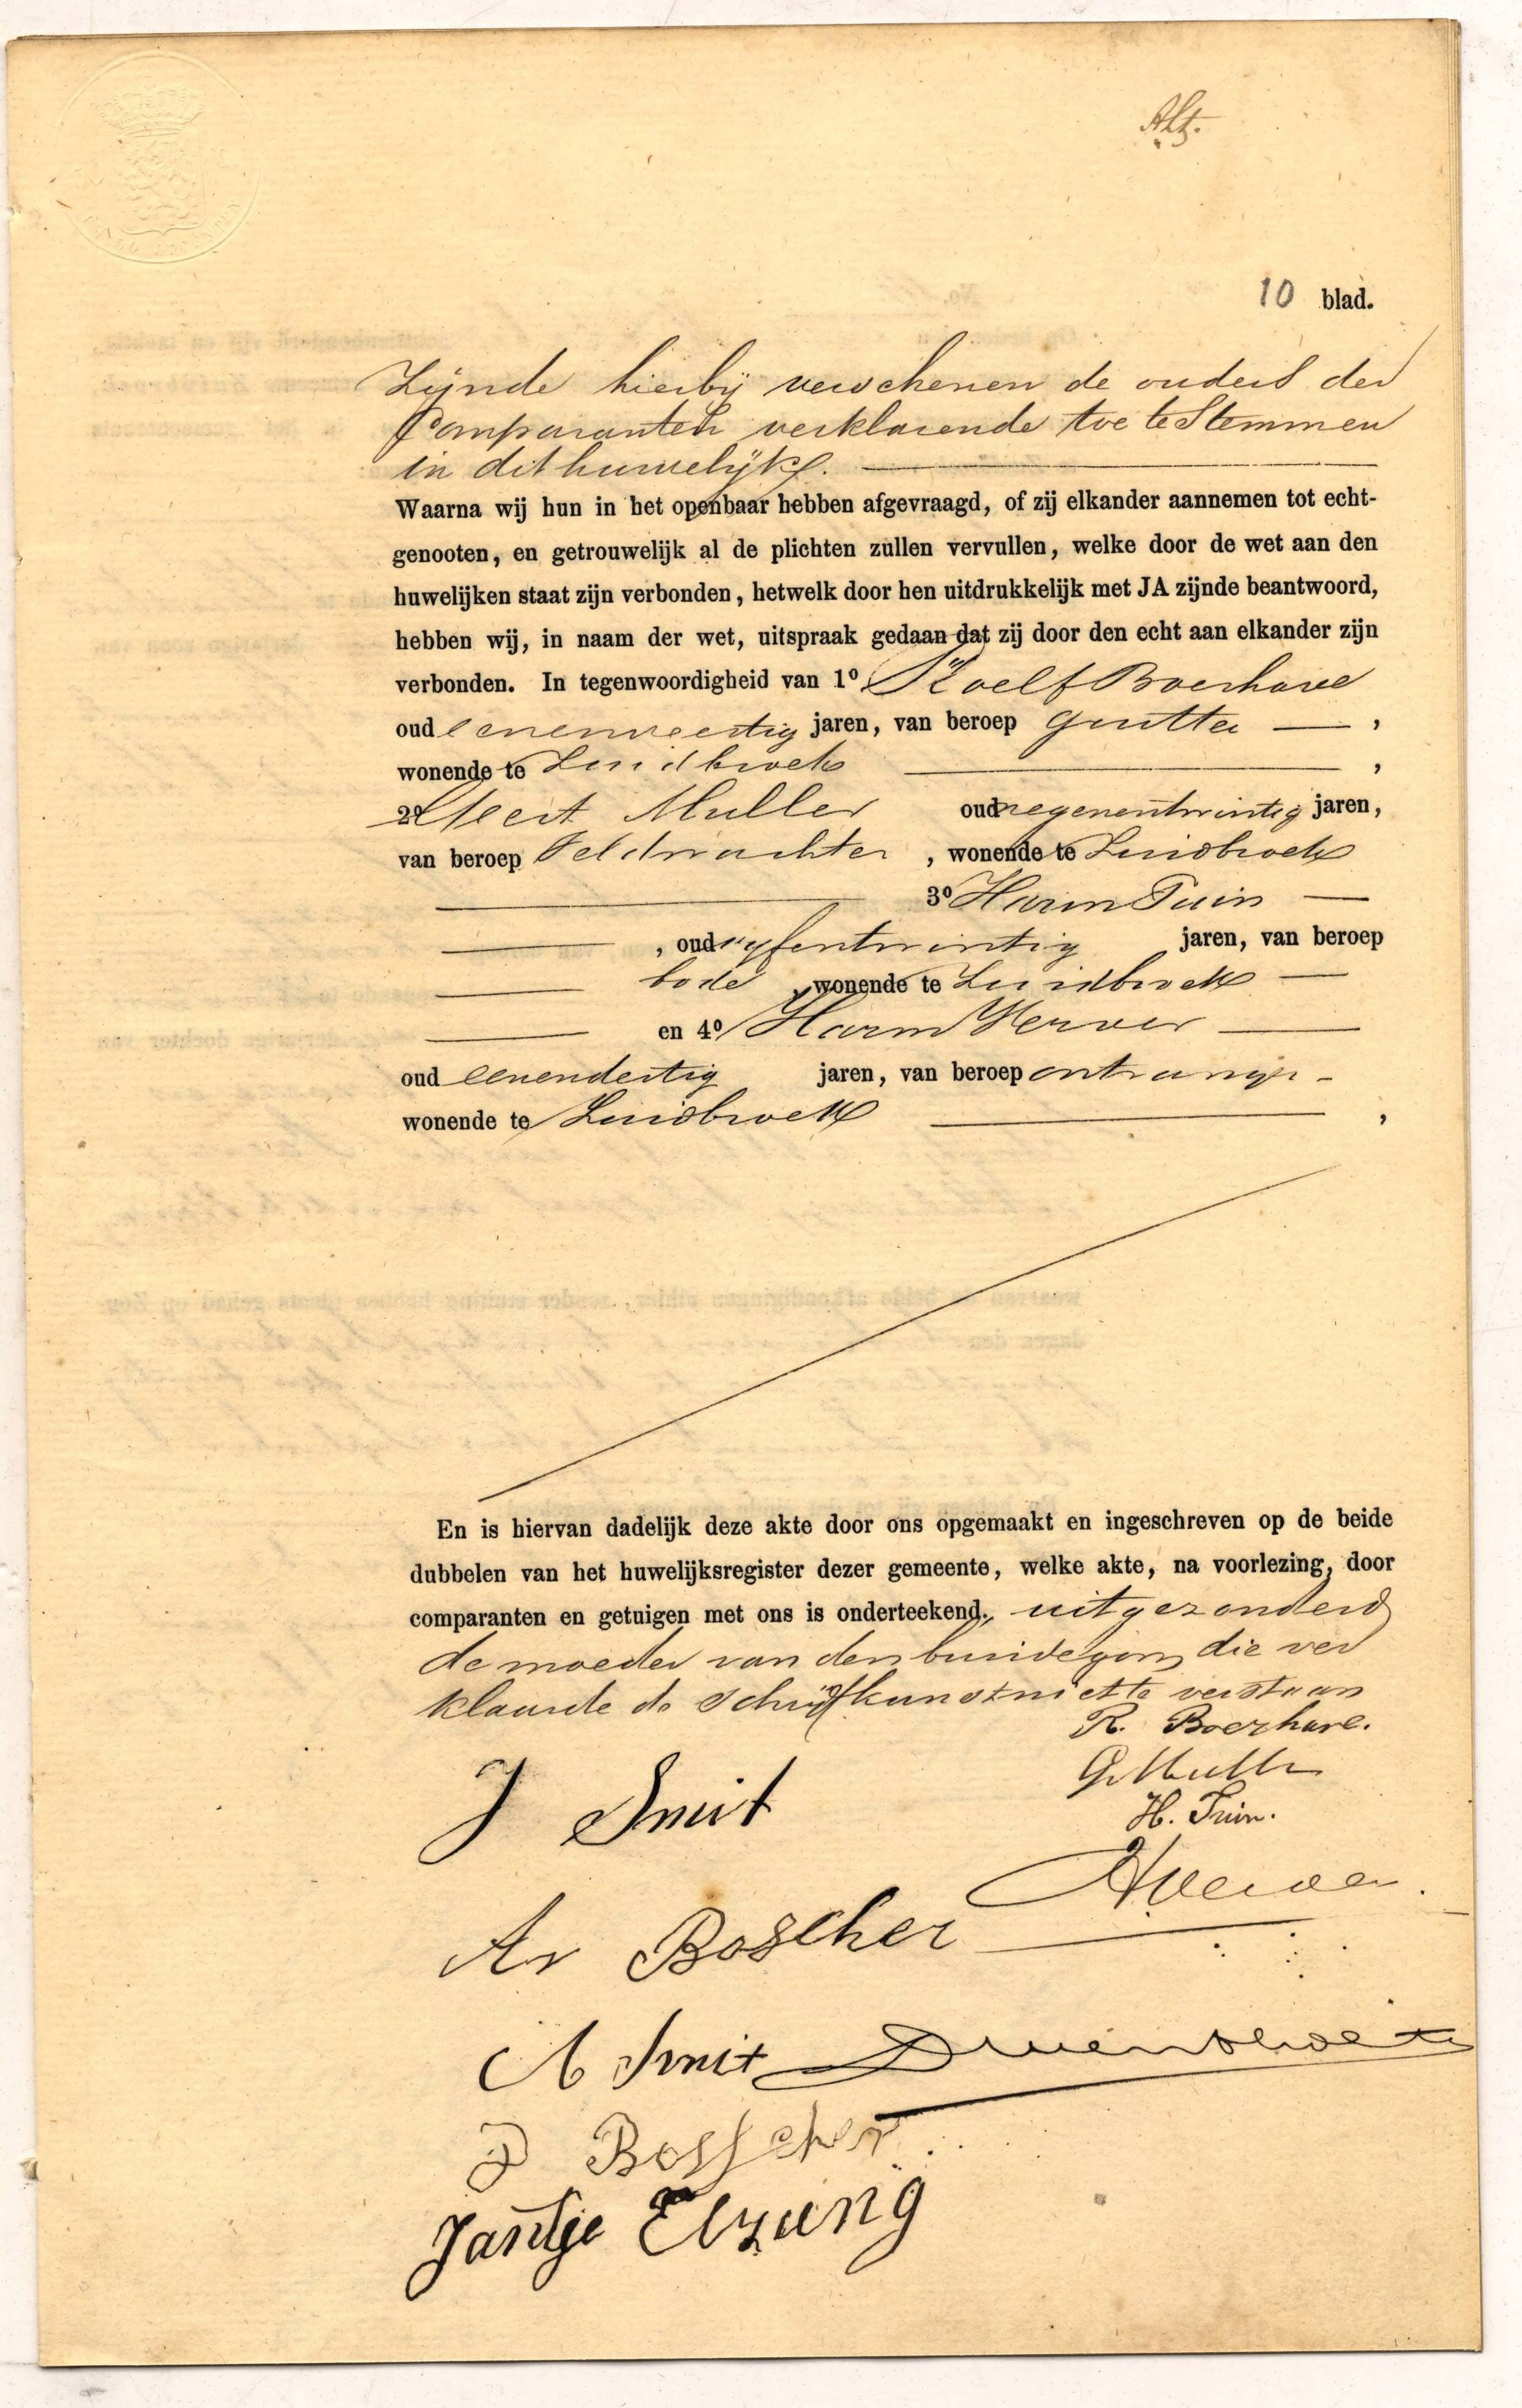 Alz.
10 blad.
Zijnde hierbij verschenen de ouders der
Comparanten verklarende toe te Stemmen
in dit huwelijk.
Waarna wij hun in het openbaar hebben afgevraagd, of zij elkander aannemen tot echt-
genooten, en getrouwelijk al de plichten zullen vervullen, welke door de wet aan den
huwelijken staat zijn verbonden, hetwelk door hen uitdrukkelijk met JA zijnde beantwoord,
hebben wij, in naam der wet, uitspraak gedaan dat zij door den echt aan elkander zijn
verbonden. In tegenwoordigheid van 1º Roelf Boerhave
oud eenenveertig jaren, van beroep
wonende te Zuidbroek ,
2º Geert Muller oud negenentwintig jaren,
van beroep Veldwachter , wonende te Zuidbroek
3º Harm Tuin
, oud vyfentwintig jaren, van beroep
bode , wonende te Zuidbroek
en 4º Harm Verver
oud eenendertig jaren, van beroep ontvanger
wonende te Zuidbroek ,
En is hiervan dadelijk deze akte door ons opgemaakt en ingeschreven op de beide
dubbelen van het huwelijksregister dezer gemeente, welke akte, na voorlezing, door
comparanten en getuigen met ons is onderteekend, uitgezonderd
de moeder van den bruidegom die ver
klaarde de Schrijfkunst niet te verstaan
R. Boerhave.
J Smit
G Muller
H. Tuin.
HVerver
Ar Boscher
A Smit
P Bosscher
Jantje Elzung